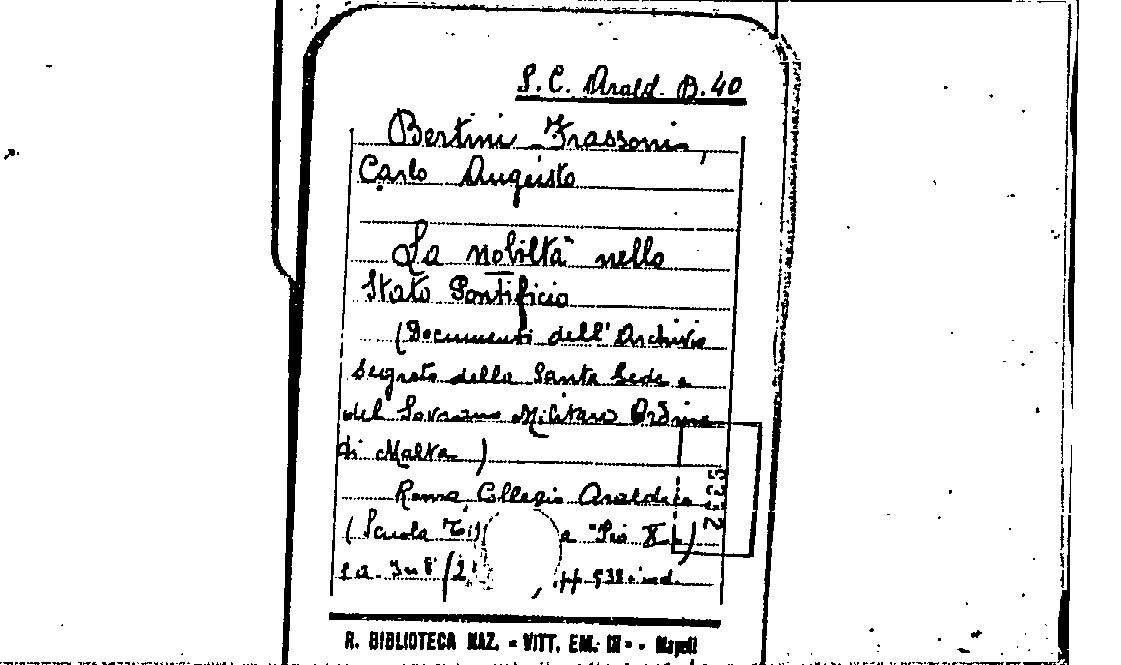 S. C. Arald. B. 40
Bertini Frassoni,
Carlo Augusto
La nobiltà nello
Stato Pontificio
(Documenti dell'Archivio
Segreto della Santa Sede e
del Sovrano Militare Ordine
di Malta)
Roma, Collegio Araldico
(Scuola Ti a "Pio X")
s.a. In 8° pp. 538
R. BIBLIOTECA NAZ. « VITT. EM. III » - Napoli